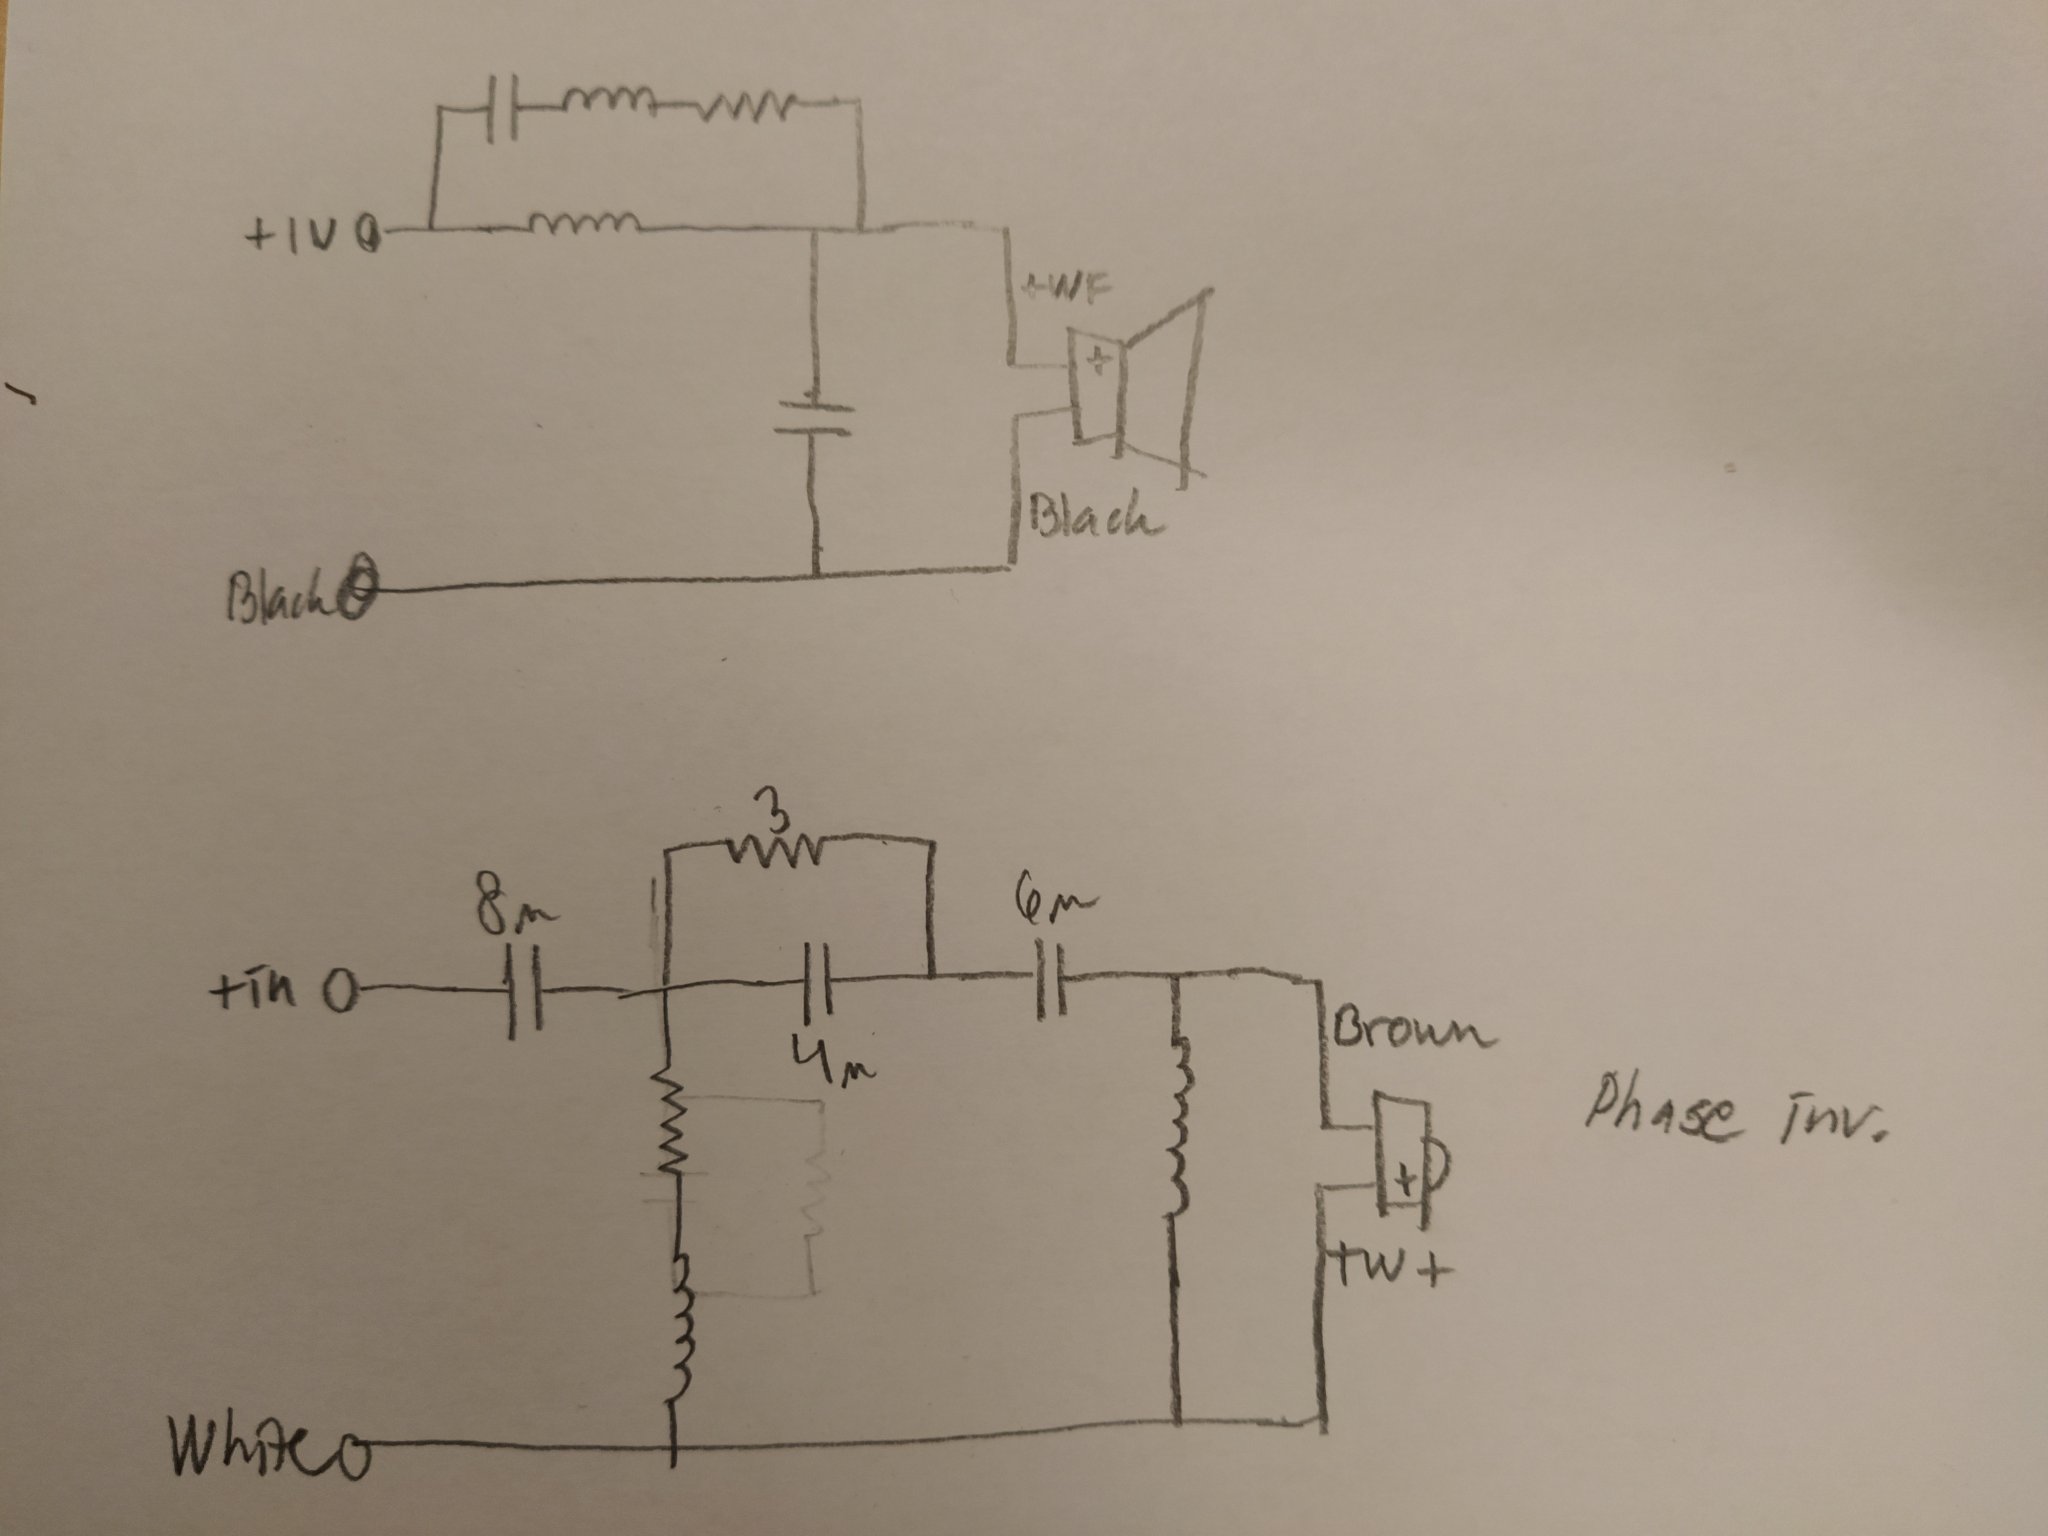 +IN
+WF
+
Black
Black
3
8m
6m
+in
4m
Brown
Phase inv.
+
+W+
White